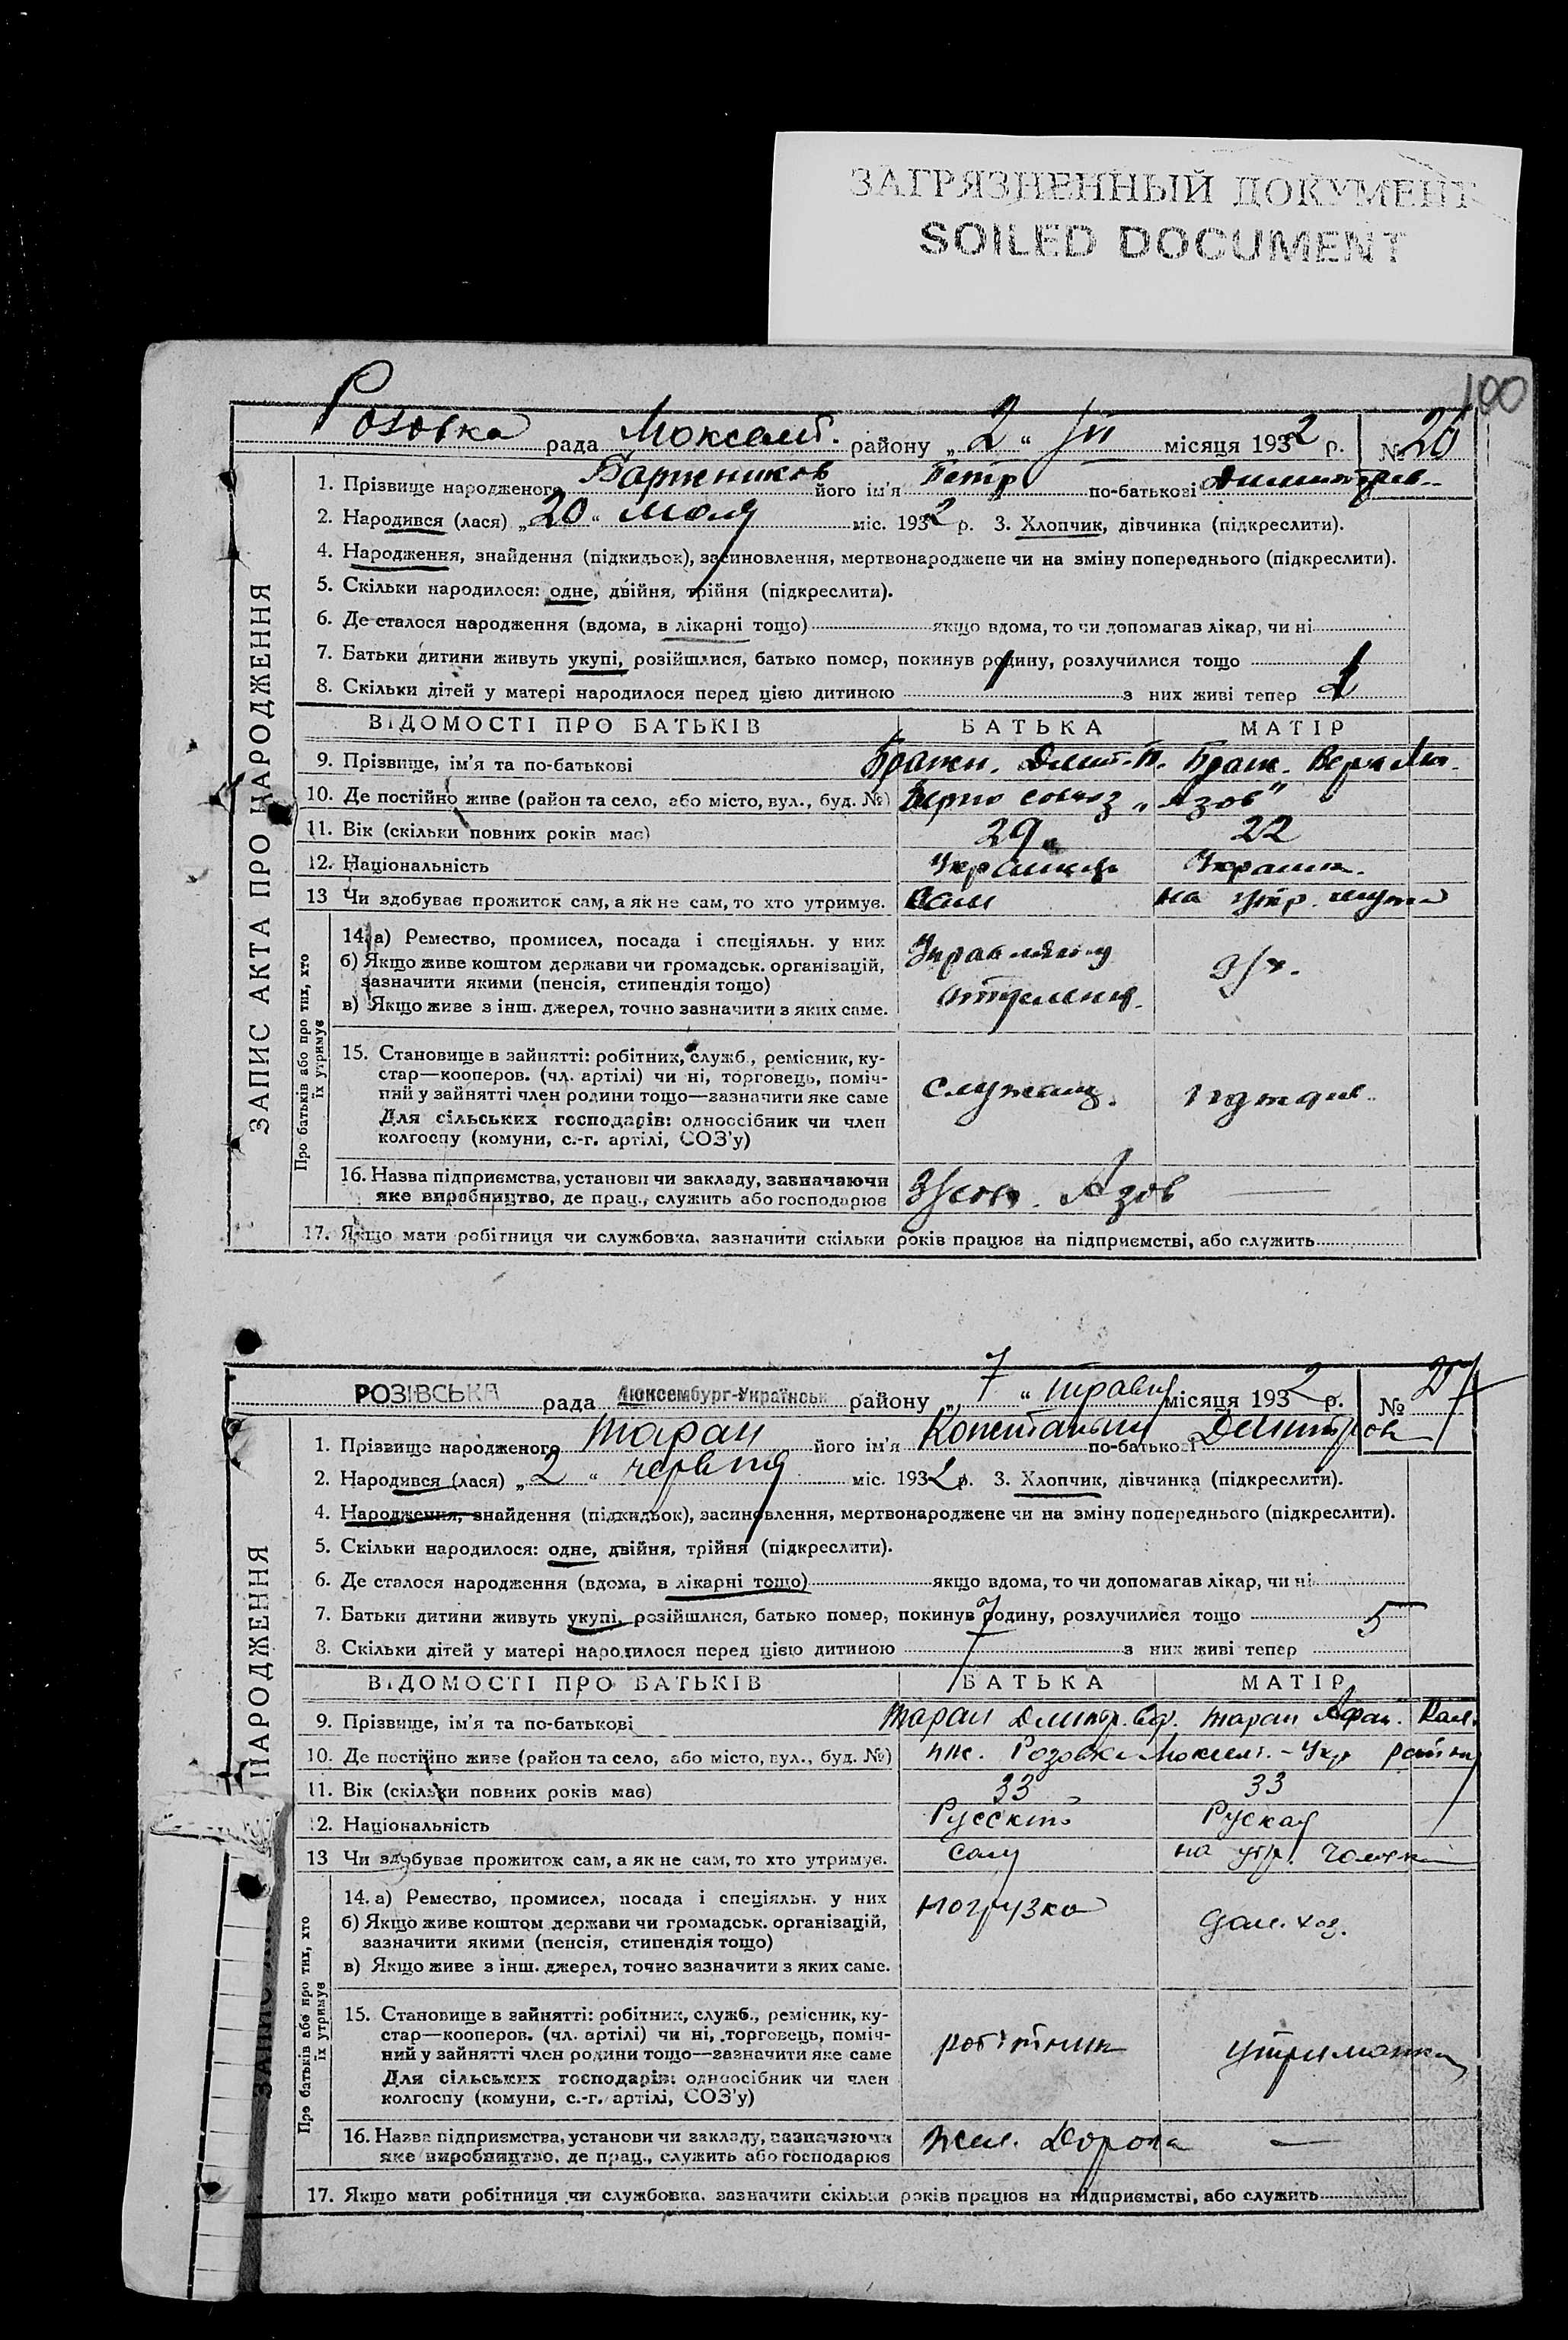 ЗАГРЯЗНЕННЫЙ ДОКУМЕНТ
SOILED DOCUMENT
100
ЗАПИС АКТА ПРО НАРОДЖЕННЯ
Розовка рада Люксемб. району „ 2 “ місяця 1932 р. № 26
1. Прізвище народженого його ім'я Петр по-батькові
2. Народився (лася) „ 20 “ міс. 1932 р. 3. Хлопчик, дівчинка (підкреслити).
4. Народження, знайдення (підкидьок), засиновлення, мертвонароджене чи на зміну попереднього (підкреслити).
5. Скільки народилося: одне, двійня, трійня (підкреслити).
6. Де сталося народження (вдома, в лікарні тощо) якщо вдома, то чи допомагав лікар, чи ні
7. Батьки дитини живуть укупі, розійшлися, батько помер, покинув родину, розлучилися тощо
8. Скільки дітей у матері народилося перед цією дитиною з них живі тепер
ВІДОМОСТІ ПРО БАТЬКІВ БАТЬКА МАТІР
9. Прізвище, ім'я та по-батькові Бражн. Дмит. Браж. Вера
10. Де постійно живе (район та село, або місто, вул., буд. №) Зерно совхоз „Азов“
11. Вік (скільки повних років має) 29 22
12. Національність Украинец Украин.
13 Чи здобуває прожиток сам, а як не сам, то хто утримує. Сам на утр. мужа
Про батьків або про тих, хто їх утримує
14. а) Ремество, промисел, посада і спеціяльн. у них
б) Якщо живе коштом держави чи громадськ. організацій,
зазначити якими (пенсія, стипендія тощо)
в) Якщо живе з інш. джерел, точно зазначити з яких саме.
Управляющ
отделения
15. Становище в зайнятті: робітник, служб., ремісник, ку-
стар—кооперов. (чл. артілі) чи ні, торговець, поміч-
ний у зайнятті член родини тощо—зазначити яке саме
Для сільських господарів: одноосібник чи член
колгоспу (комуни, с.-г. артілі, СОЗ'у)
служащ. иждив.
16. Назва підприємства, установи чи закладу, зазначаючи
яке виробництво, де прац., служить або господарює
Азов —
17. Якщо мати робітниця чи службовка, зазначити скільки років працює на підприємстві, або служить
НАРОДЖЕННЯ
РОЗІВСЬКА рада Люксембург-Українськ району „ 7 “ травня місяця 1932 р. № 27
1. Прізвище народженого Таран його ім'я Константин по-батькові Дмитров
2. Народився (лася) „ 2 “ червня міс. 1932 р. 3. Хлопчик, дівчинка (підкреслити).
4. Народження, знайдення (підкидьок), засиновлення, мертвонароджене чи на зміну попереднього (підкреслити).
5. Скільки народилося: одне, двійня, трійня (підкреслити).
6. Де сталося народження (вдома, в лікарні тощо) якщо вдома, то чи допомагав лікар, чи ні
7. Батьки дитини живуть укупі, розійшлися, батько помер, покинув родину, розлучилися тощо
8. Скільки дітей у матері народилося перед цією дитиною 7 з них живі тепер 5
ВІДОМОСТІ ПРО БАТЬКІВ БАТЬКА МАТІР
9. Прізвище, ім'я та по-батькові Таран Дмитр. Еф. Таран Афан.
10. Де постійно живе (район та село, або місто, вул., буд. №) Розовка Люксемб.-Укр району
11. Вік (скільки повних років має) 33 33
12. Національність Русский Руская
13 Чи здобуває прожиток сам, а як не сам, то хто утримує. сам на утр.
Про батьків або про тих, хто їх утримує
14. а) Ремество, промисел, посада і спеціяльн. у них
б) Якщо живе коштом держави чи громадськ. організацій,
зазначити якими (пенсія, стипендія тощо)
в) Якщо живе з інш. джерел, точно зазначити з яких саме.
погрузка дом. хоз.
15. Становище в зайнятті: робітник, служб., ремісник, ку-
стар—кооперов. (чл. артілі) чи ні, торговець, поміч-
ний у зайнятті член родини тощо—зазначити яке саме
Для сільських господарів: одноосібник чи член
колгоспу (комуни, с.-г. артілі, СОЗ'у)
робітник утриманка
16. Назва підприємства, установи чи закладу, зазначаючи
яке виробництво, де прац., служить або господарює
Жел. Дорога —
17. Якщо мати робітниця чи службовка, зазначити скільки років працює на підприємстві, або служить